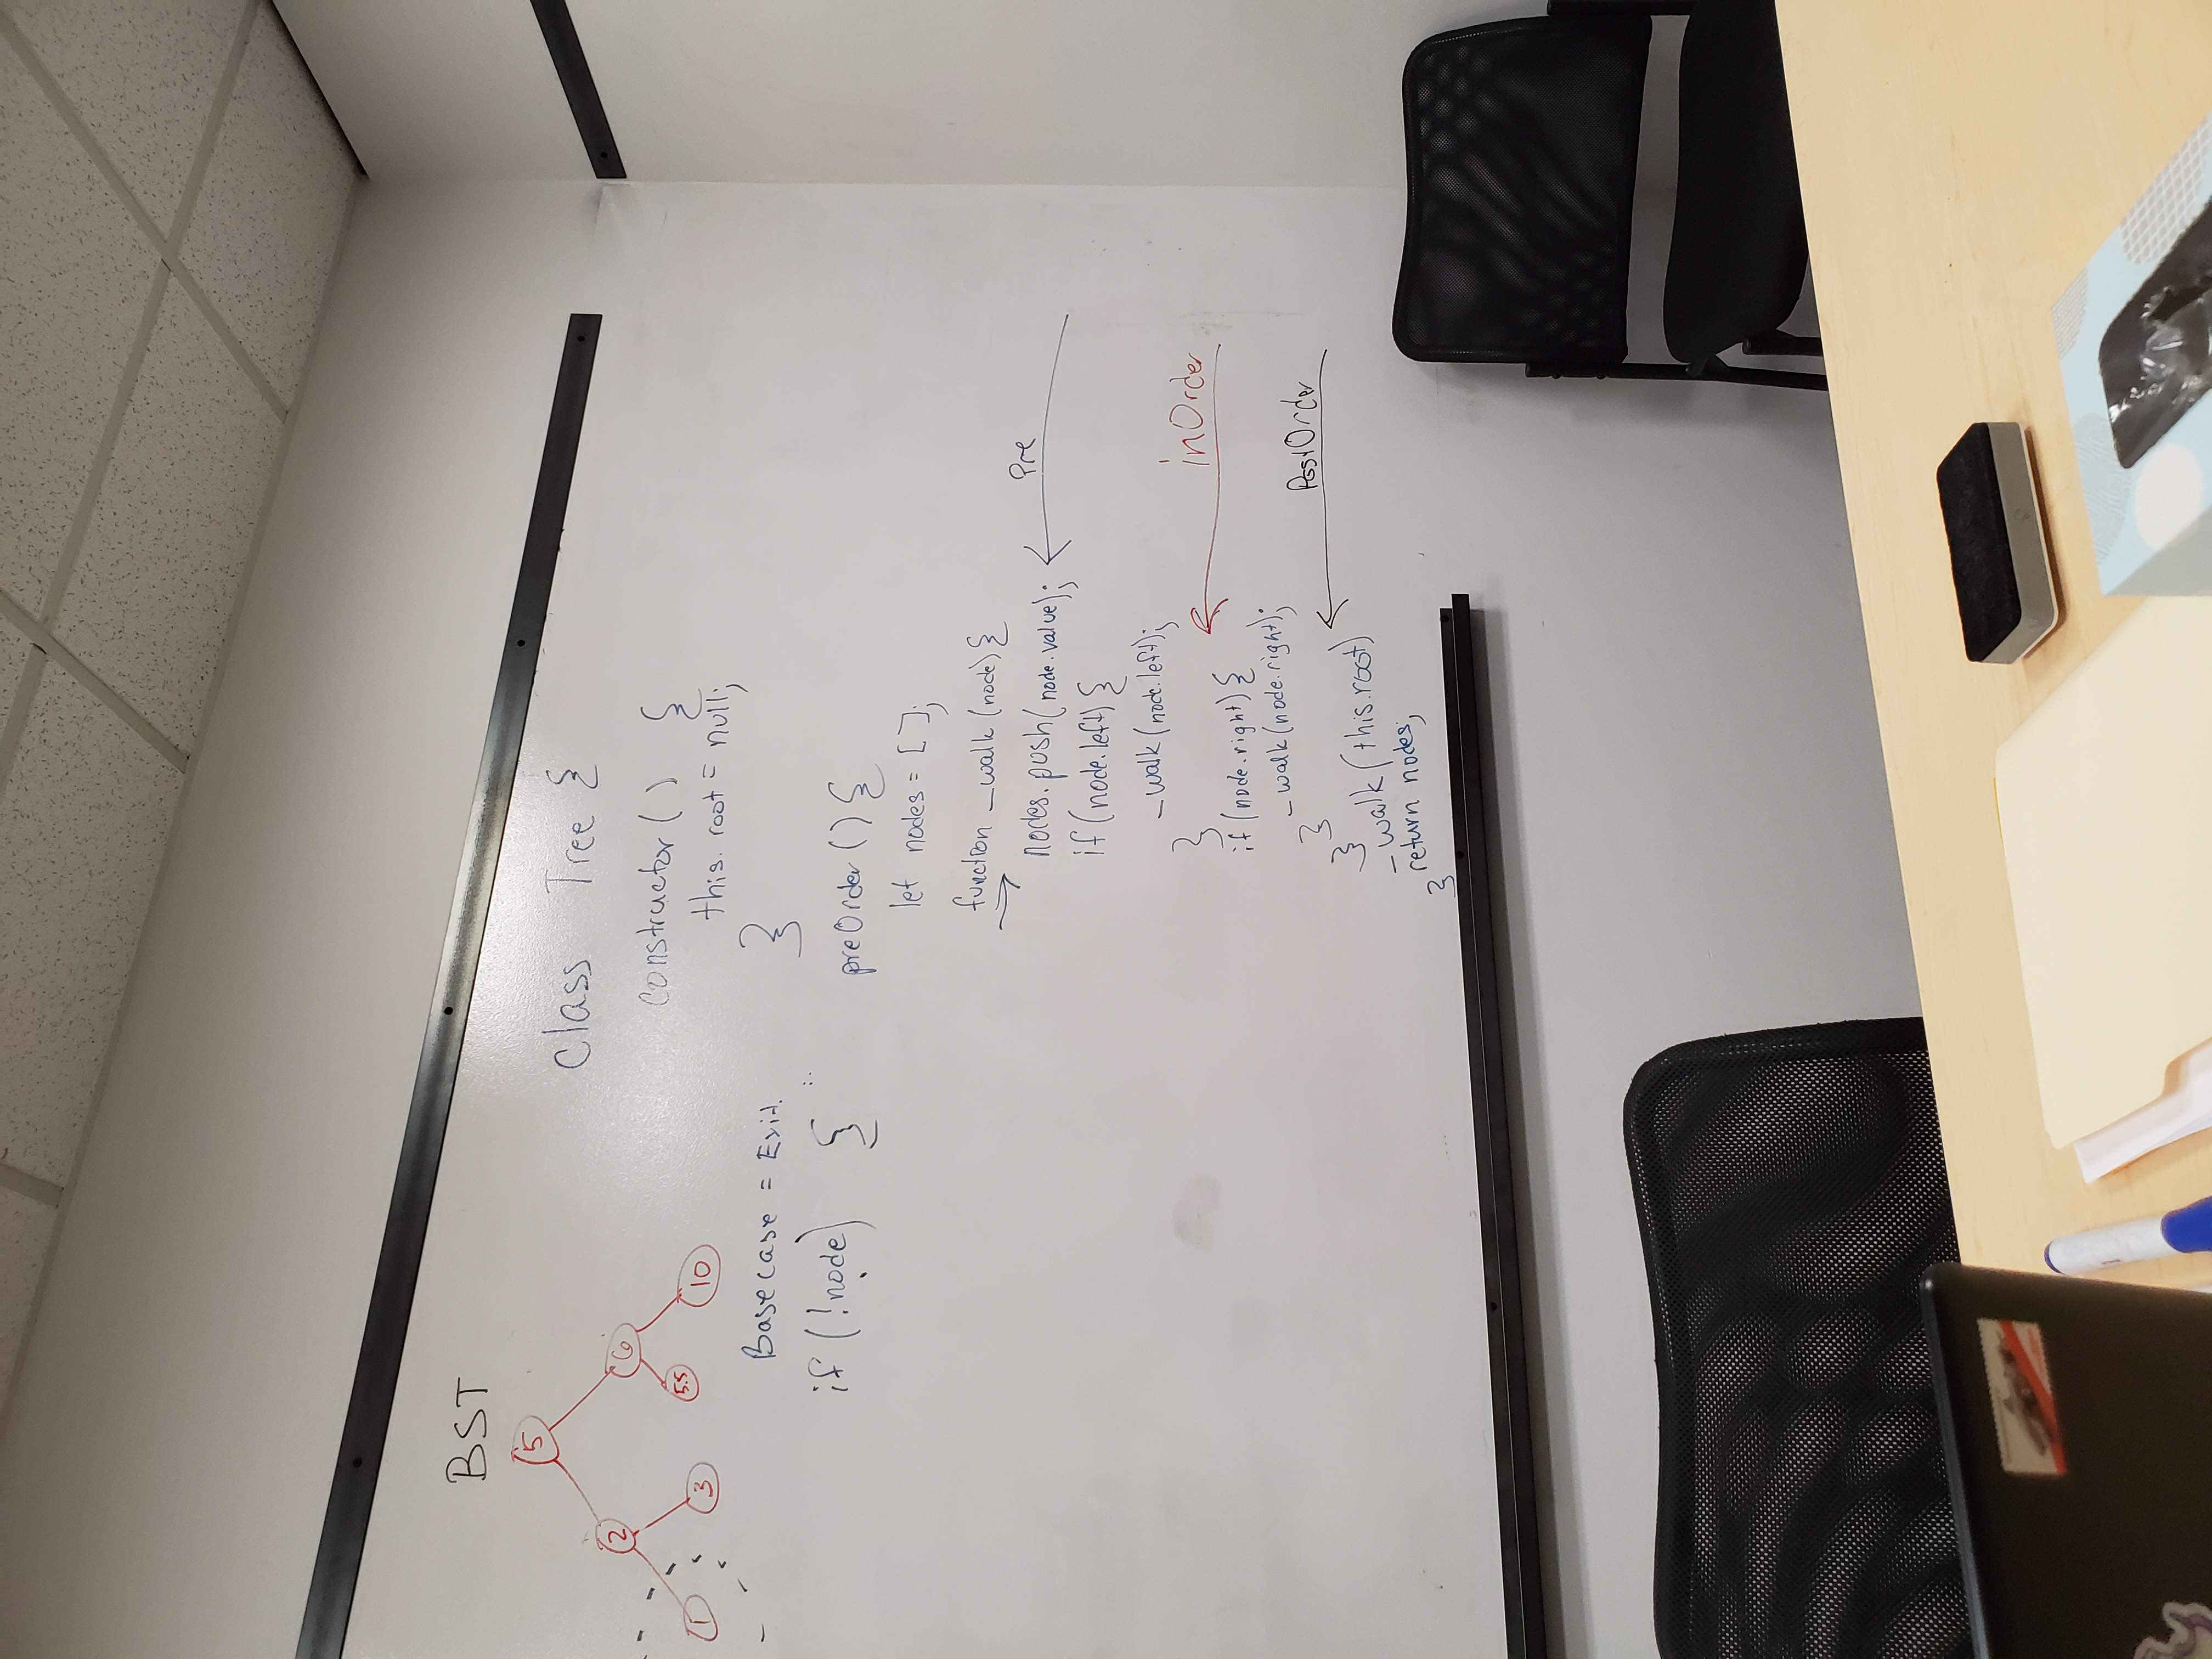 BST
5
2
6
1
3
5.5
10
Basecase = Exit.
if (!node) {
class Tree {
constructor() {
this.root = null;
}
preOrder() {
let nodes = [];
function _walk (node) {
nodes.push(node.value); Pre
if (node.left) {
_walk (node.left);
}
inOrder
if (node.right) {
_walk (node.right);
}
PostOrder
}
_walk (this.root)
return nodes;
}